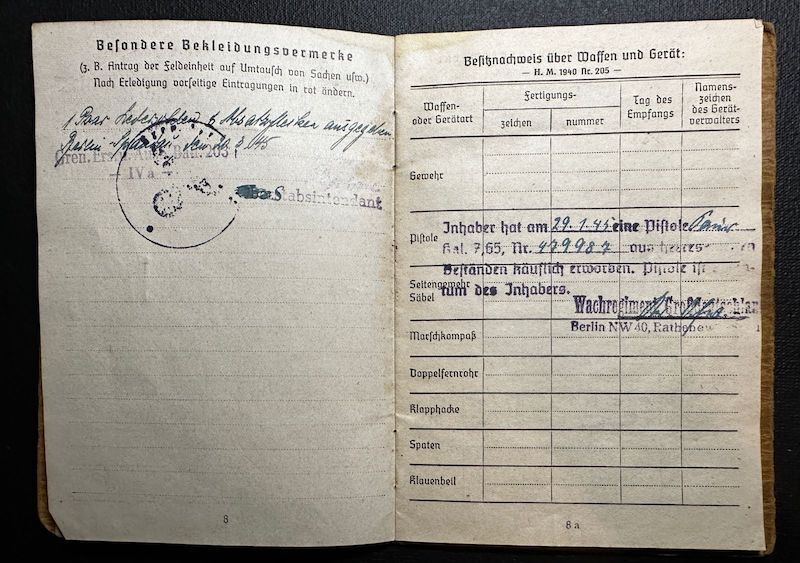 Besondere Bekleidungsvermerke
(z. B. Antrag der Feldeinheit auf Umtausch von Sachen usw.)
Nach Erledigung vorseitige Eintragungen in rot ändern.
1 Paar Ledersohlen 6 Absatzflecken ausgegeben
Berlin Spandau den
Gren. Ers. u. Ausb. Batl. 203
– IVa –
Stabsintendant
8
Besitznachweis über Waffen und Gerät:
— H. M. 1940 Nr. 205 —
Waffen- oder Gerätart
Fertigungs-
zeichen
nummer
Tag des Empfangs
Namens- zeichen des Gerät- verwalters
Gewehr
Pistole
Inhaber hat am 29.1.45 eine Pistole
Kal. 7,65, Nr. 479987 aus Heeres-
Beständen käuflich erworben. Pistole ist
tum des Inhabers.
Wachregiment Großdeutschlan
Berlin NW 40, Rathenow
Seitengewehr
Säbel
Marschkompaß
Doppelfernrohr
Klapphacke
Spaten
Klauenbeil
8a